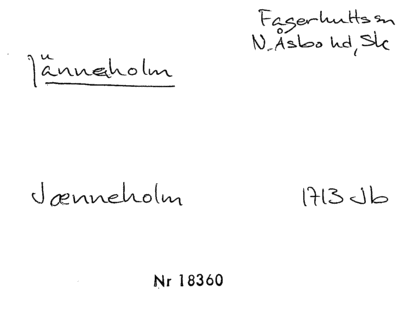 Fagerhults sn
N. Åsbo hd, Sk
Jänneholm
Jænneholm 1713 Jb
Nr 18360